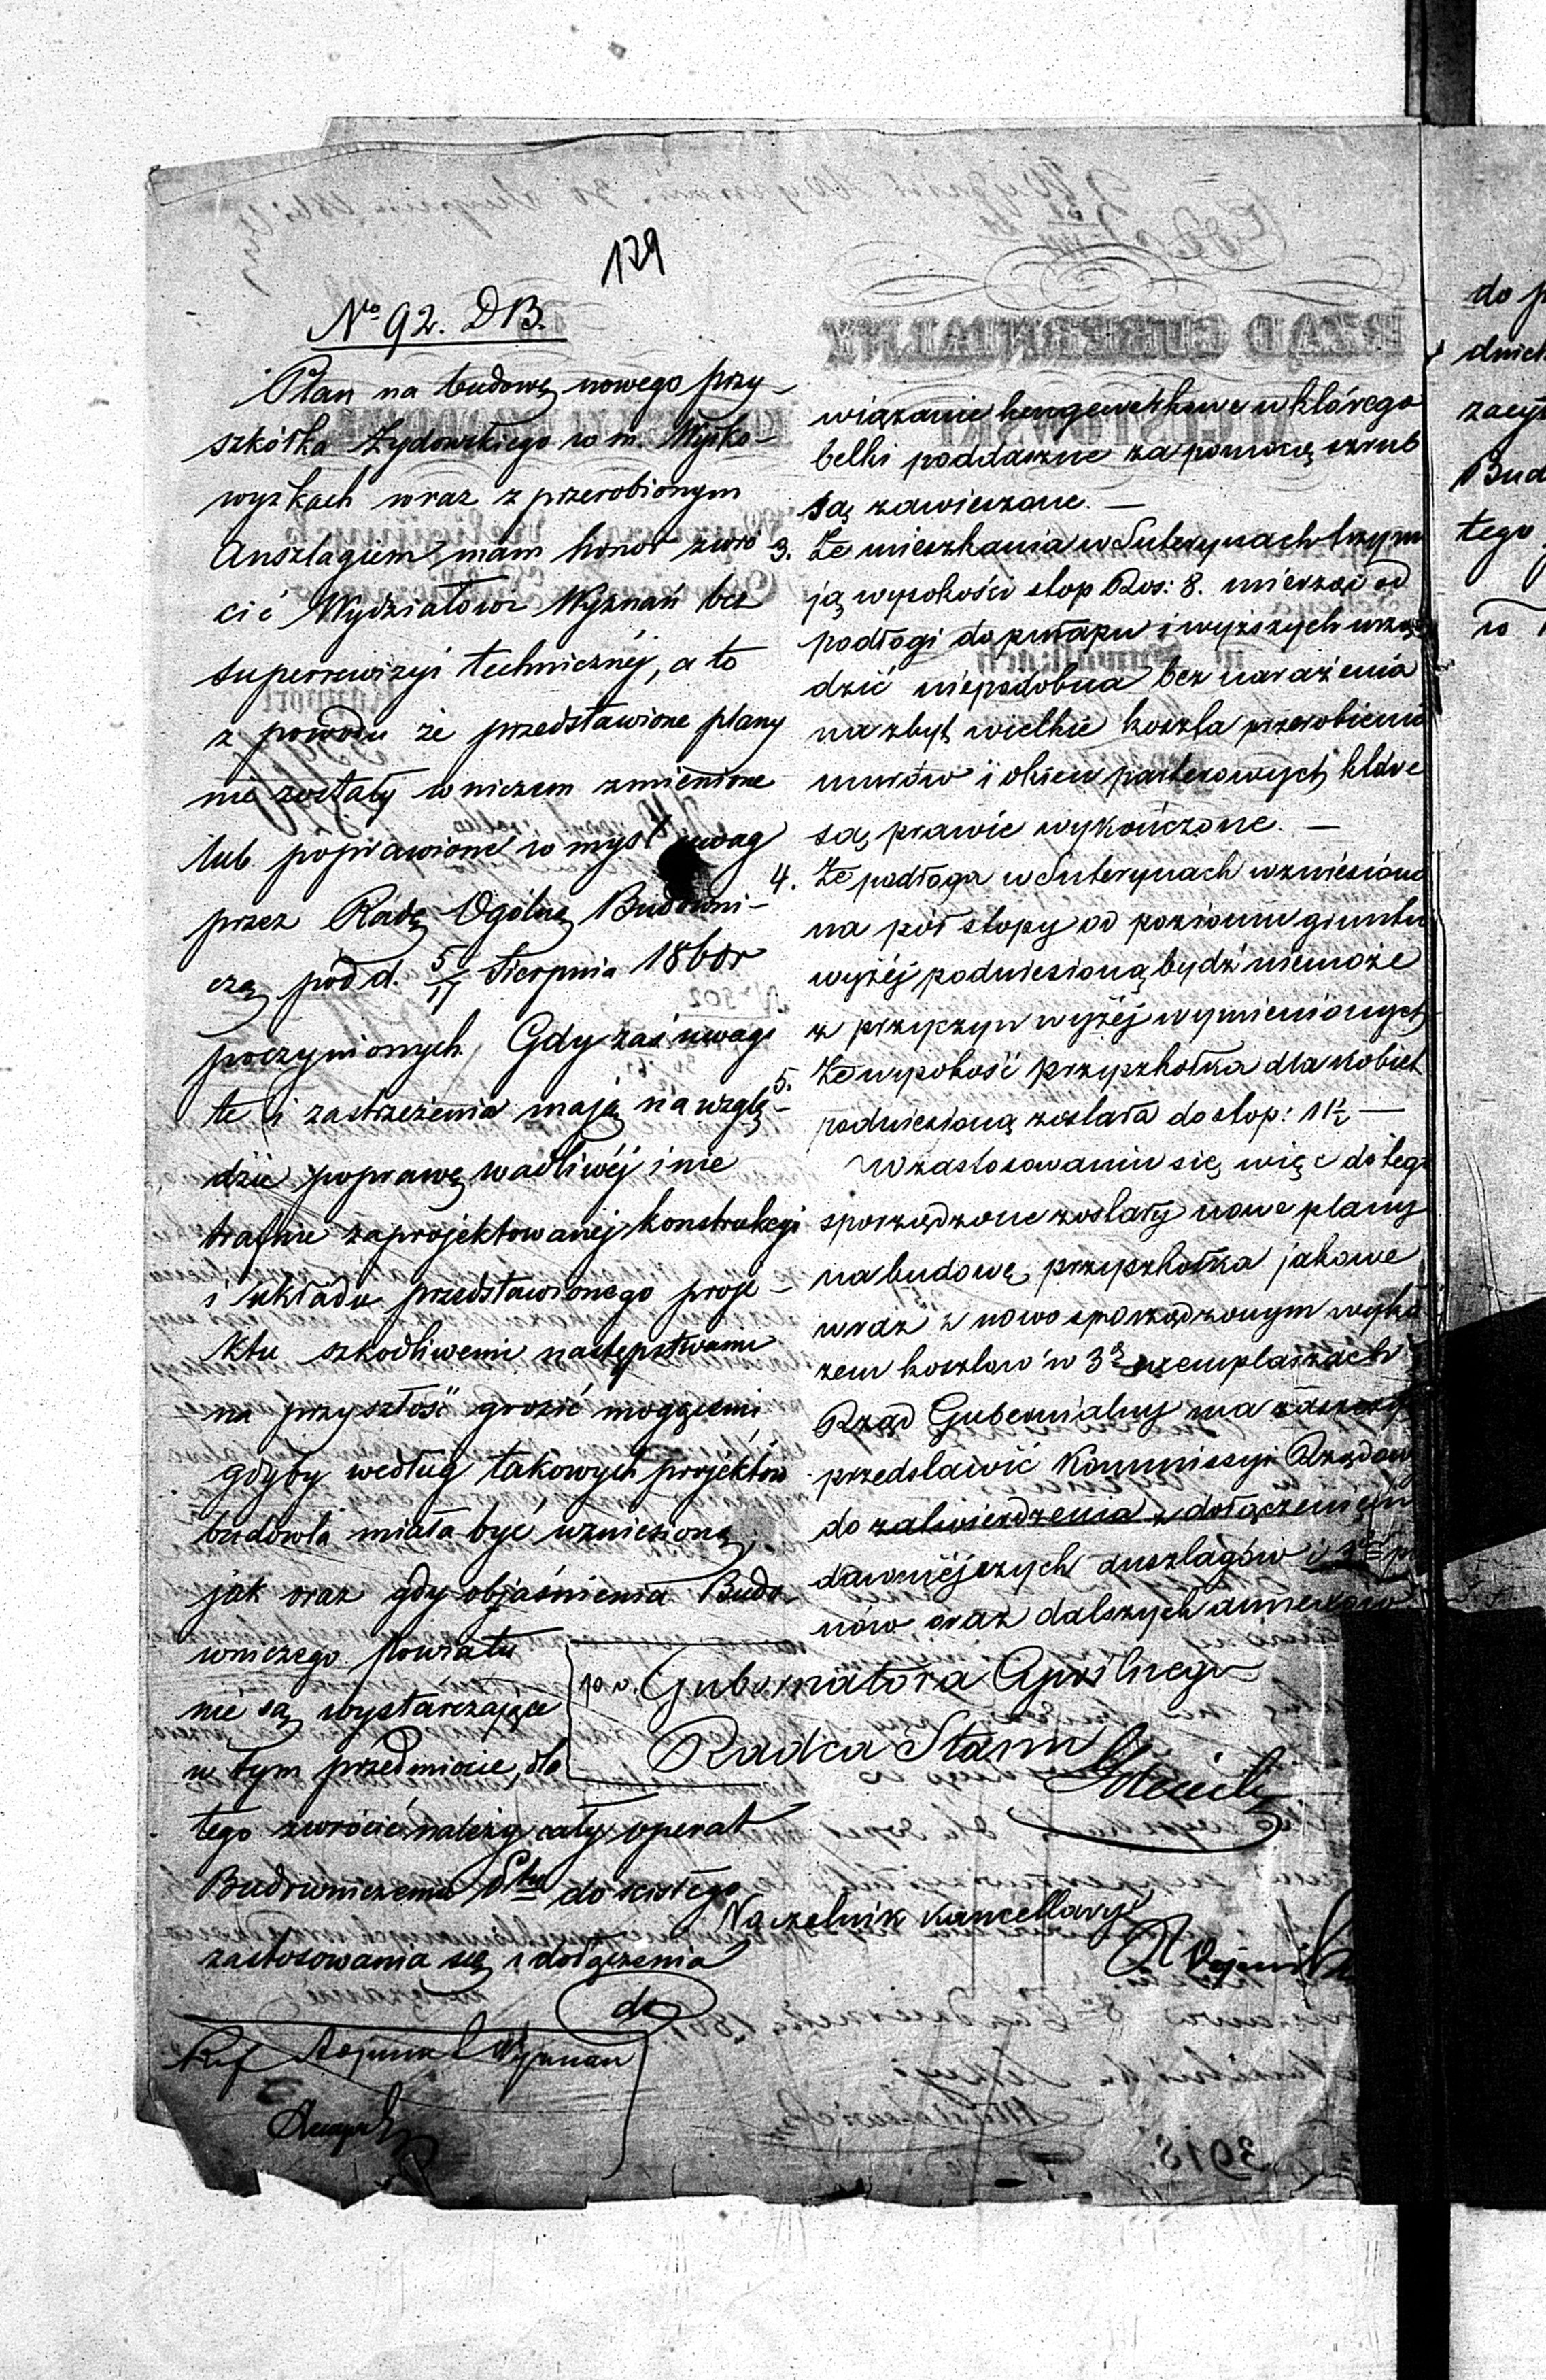 129
No 92. DB.
Plan na budowę nowego przy-
szkółka Żydowskiego w m. Wyłko-
wyszkach wraz z przerobionym
Anszlagiem, mam honor zwró
cić Wydziałowi Wyznań bez
superrewizyi technicznéj, a to
z powodu że przedstawione plany
nie zostały w niczem zmienione
lub poprawione w myśl uwag
przez Radę Ogólną Budowni-
czą pod d. 5/17 Sierpnia 1860r
poczynionych. Gdy zaś uwagi
te i zastrzeżenia mają na wzglę-
dzie poprawę wadliwéj i nie
trafnie zaprojektowanéj konstrukcyi
i układu przedstawionego proje-
ktu szkodliwemi następstwami
na przyszłość grozić mogącemi,
gdyby według takowych projektów
budowla miała być wzniesioną,
jak oraz gdy objaśnienia Budo
wniczego Powiatu
nie są wystarczające
w tym przedmiocie, dla
tego zwrócić należy cały operat
Budowniczemu Ptu do ścisłego
zastosowania się i dołączenia
do
Wyznań
wiązanie hengewerkowe w którego
belki poddaszne za pomocą szrub
są zawieszone. —
3. Że mieszkania w Suterynach trzyma
ją wysokości stop Ros: 8. mierząc od
podłogi do pułapu i wyższych urzą
dzić niepodobna bez narażenia
na zbyt wielkie koszta przerobienia
murów i okien parterowych które
są prawie wykończone. —
4. Że podłoga w Suterynach wzniesiona
na pół stopy od poziomu gruntu
wyżéj podniesioną bydź niemoże
z przyczyn wyżéj wymienionych
5. Że wysokość przyszkółka dla kobiet
podniesioną została do stop: 11½ —
W zastosowaniu się więc do tego
sporządzone zostały nowe plany
na budowę przyszkółka jakowe
wraz z nowo sporządzonym wyka
zem kosztów w 3ch exemplarzach
Rząd Gubernialny ma zaszczyt
przedstawić Kommissyi Rządow
do zatwierdzenia z dołączeniem
dawniéjszych anszlagów i
nów oraz dalszych annexów
p.o. Gubernatora Cywilnego
Radca Stanu
Naczelnik Kancellaryi
do p
dnich
zaczy
Bud
tego
w